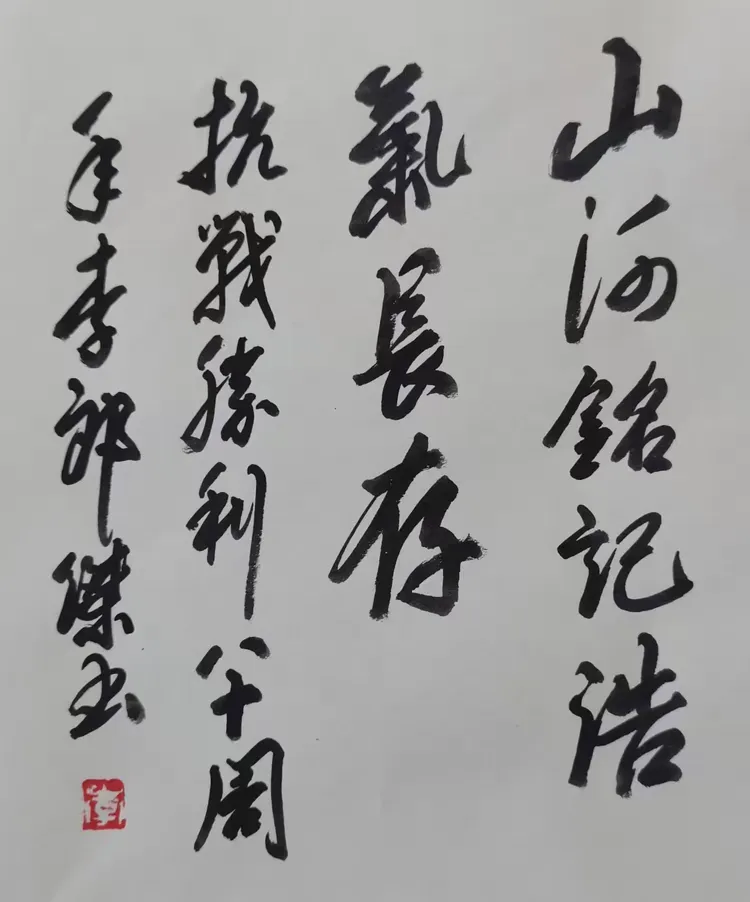 山河銘記浩
氣長存
抗戰勝利八十周
年李郎傑书
李